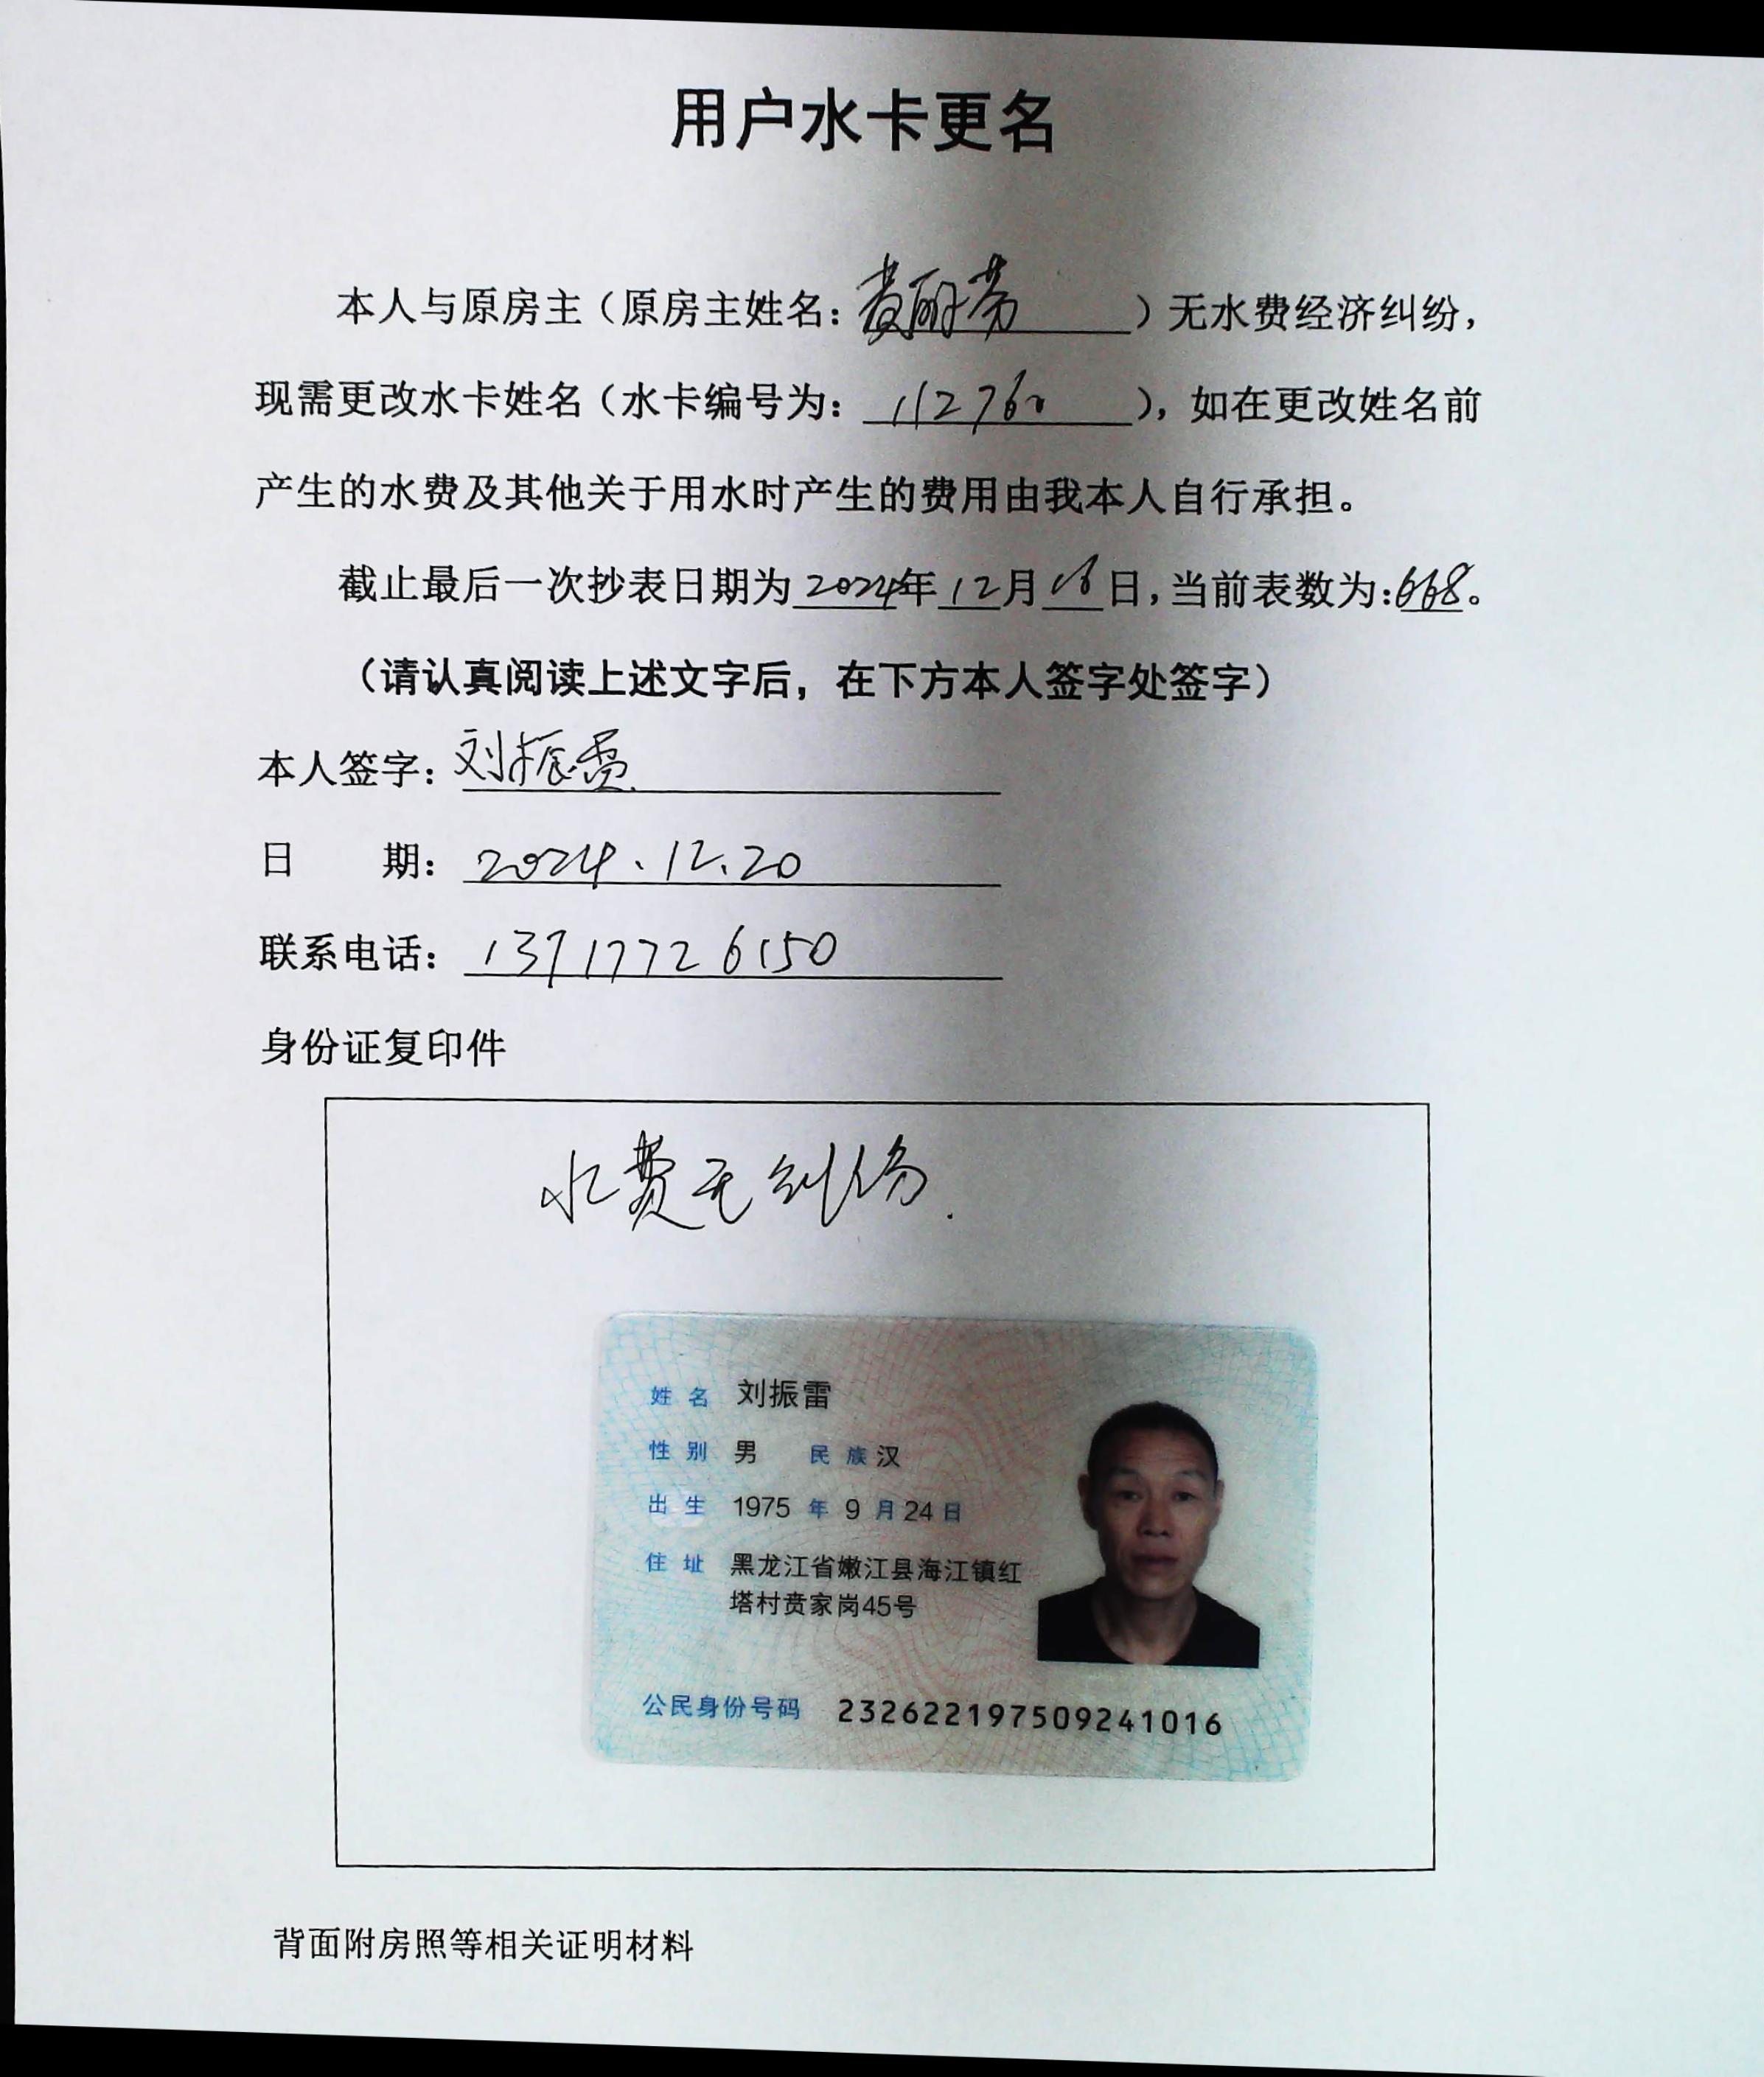 用户水卡更名
本人与原房主（原房主姓名：黄丽芳）无水费经济纠纷，
现需更改水卡姓名（水卡编号为：112760），如在更改姓名前
产生的水费及其他关于用水时产生的费用由我本人自行承担。
截止最后一次抄表日期为2024年12月16日，当前表数为：668。
（请认真阅读上述文字后，在下方本人签字处签字）
本人签字：刘振雷
日 期：2024.12.20
联系电话：13917726150
身份证复印件
水费无纠纷.
姓名 刘振雷
性别 男 民族 汉
出生 1975 年 9 月 24 日
住址 黑龙江省嫩江县海江镇红
塔村贲家岗45号
公民身份号码 232622197509241016
背面附房照等相关证明材料